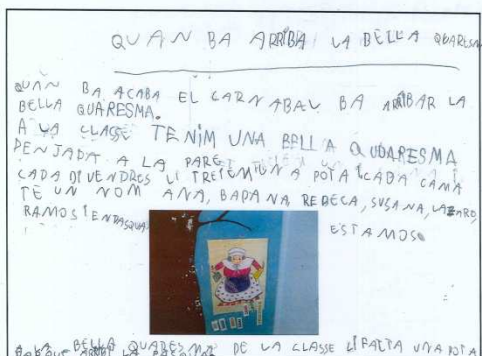 QUAN BA ARRIBA LA BELLA QUARESMA
QUAN BA ACABA EL CARNABAL BA ARIBAR LA
BELLA QUARESMA.
A LA CLASSE TENIM UNA BELLA QUDARESMA
PENJADA A LA PARET
CADA DIVENDRES LI TREIEM UNA POTA I CADA CAMA
TE UN NOM ANA, BADANA REBECA, SUSANA, LAZARO,
RAMOS I ENPASQUA ESTAMOS.
A LA BELLA QUARESMA DE LA CLASSE LI FALTA UNA POTA